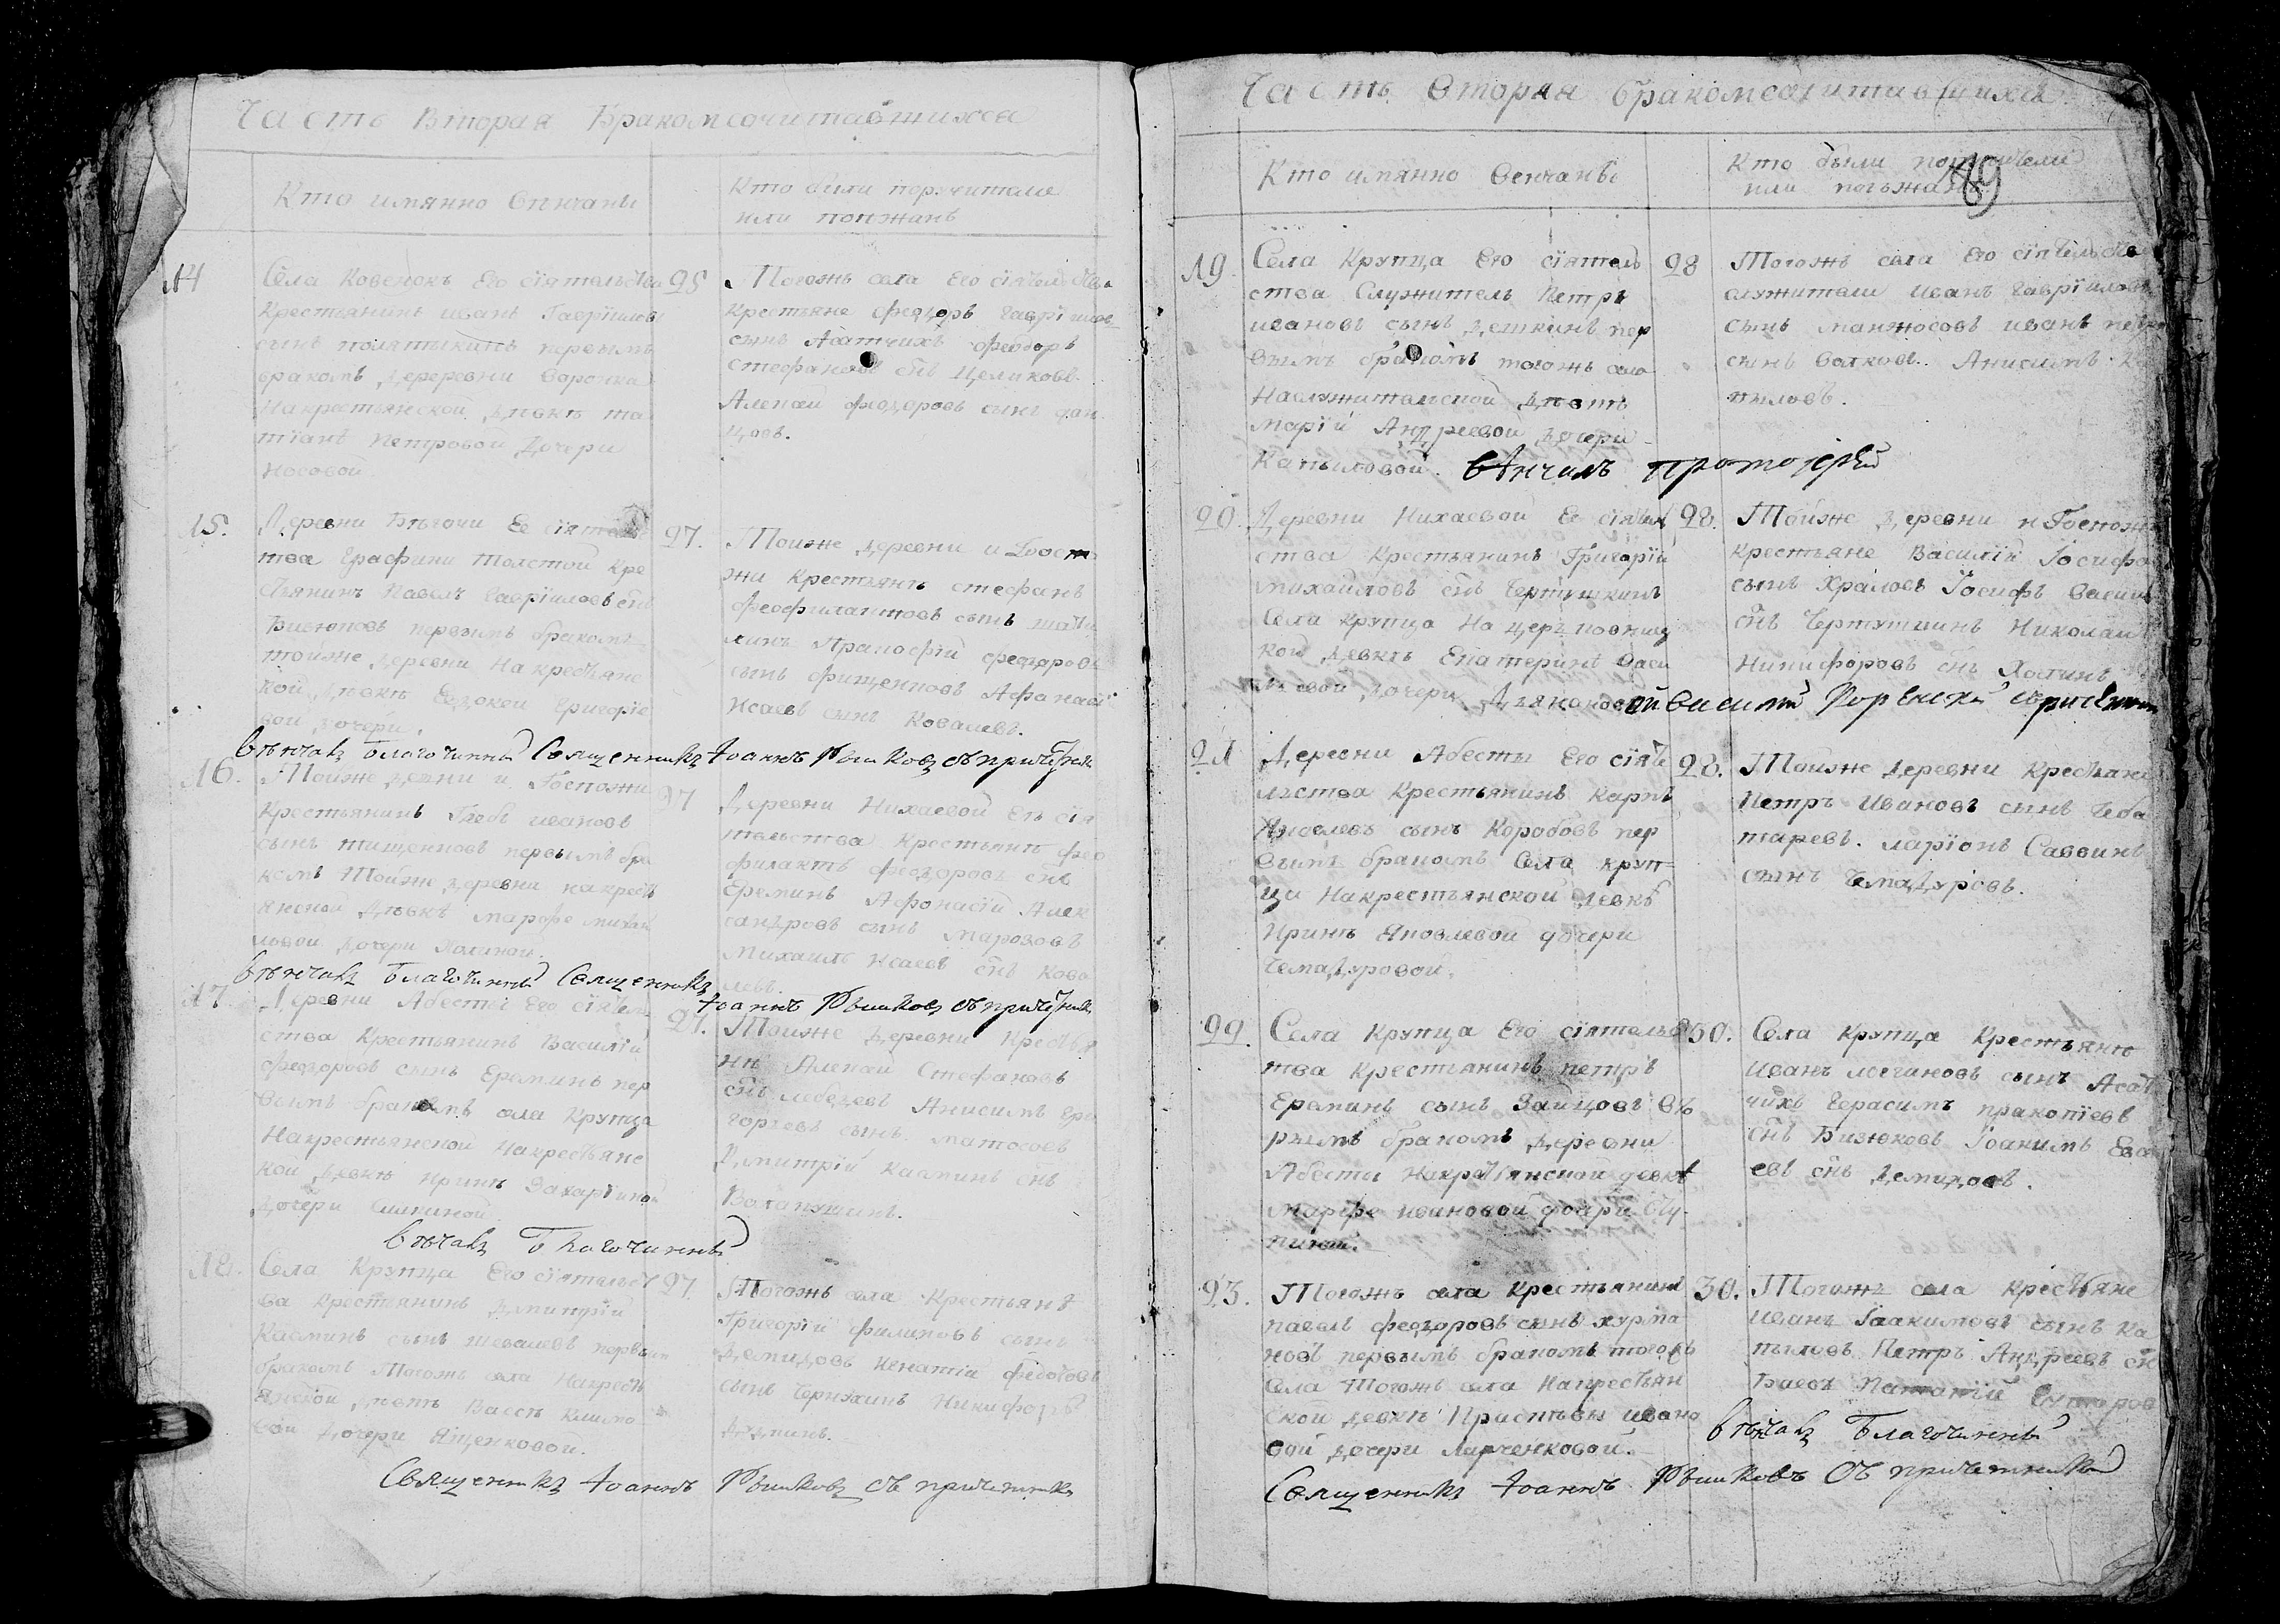 Часть Вторая Бракомсочитавшихся
Кто имянно Венчаны
Кто были поручители
или поезжанѣ
14
Села Ковенокъ Его сіятельства
Крестьянинъ иванъ Гавріиловъ
сынъ первымъ
бракомъ Дереревни
На крестьянской Дѣвкѣ та
тіанѣ Петровой Дочери
Носовой
25
Тогожъ села Его сіятельства
Крестьяне феодоръ Гавріилов
сынъ Асатчихъ феодоръ
стефановъ снъ Целиковъ
Алексѣй феодоровъ сынъ
15.
Деревни Бѣгочи Ее сіятельс
тва Графини Толстой Кре
стьянинъ Павелъ Гавріиловъ снъ
Бизюковъ первымъ бракомъ
тойже деревни На крестьянс
кой Дѣвкѣ Евдокеи Григорїе
вой дочери
27.
Тойже деревни и Госпо
жи Крестьянѣ стефанъ
феофилактовъ сынъ
феодоровъ
сынъ фищенковъ Афанасій
Исаевъ сынъ Ковалевъ.
Вѣнчалъ благочинный Священникъ Іоаннъ Рышковъ съ причетники
16.
Тойже деревни и Госпожи
Крестьянинъ Глебъ ивановъ
сынъ первымъ бра
комъ Тойже деревни на крест
янской Дѣвкѣ марфе михай
ловой дочери
27
Деревни Нихаевой Его сія
тельства Крестьянѣ фео
филактъ феодоровъ снъ
Ереминъ Афонасій Алек
сандровъ сынъ марозовъ
Михаилъ Исаевъ снъ Кова
левъ.
Вѣнчалъ благочинный Священникъ
Іоаннъ Рышковъ съ причетники
17
Деревни Абесты Его сіятель
ства Крестьянинъ Василій
феодоровъ сынъ Ереминъ пер
вымъ бракомъ села Крупца
На крестьянской На крестьянс
кой Девкѣ иринѣ Захаріиной
дочери
27.
Тойже Деревни Крестья
нѣ Алексѣй Стефановъ
снъ лебедевъ Анисимъ Гри
горьевъ сынъ матосовъ
Дмитрій Касминъ снъ
Вѣнчалъ Благочинный
18.
Села Крупца Его сіятельст
ва Крестьянинъ Дмитрій
Касминъ сынъ первым
бракомъ Тогожъ села На крестъ
янской Дѣвкѣ Вассѣ Климо
вой Дочери Ященковой.
27.
Тогожъ села Крестьянѣ
Григорій филиповъ сынъ
Демидовъ Игнатій федотовъ
сынъ Никифоръ
Священникъ Іоаннъ Рышковъ съ причетники
Часть Вторая Бракомсочитавшихся
89
Кто имянно Венчанъ
Кто были поручители
или поезжанѣ
19.
Села Крупца Его сіятель
ства Служитель Петръ
ивановъ сынъ Дешкинъ пер
вымъ бракомъ тогожъ села
На служительской Дѣвкѣ
Маріи Андреевой Дочери
Капыловой. Вѣнчалъ протоіерей
28
Тогожъ села Его сіятельства
служители иванъ Гавріиловъ
сынъ манжосовъ иванъ
сынъ Волковъ. Анисимъ Ка
пыловъ.
20.
Деревни Нихаевой Ее сіятель
ства Крестьянинъ Григорій
михайловъ снъ Чертушкинъ
Села Крупца На церковниц
кой Девкѣ Екатеринѣ Васи
льевой дочери Дьяконовой Василій съ причетники
28.
Тойже Деревни и Госпожи
Крестьяне Василій Іосифо
сынъ Храмовъ Іосифъ Васил
снъ Чертушкинъ Николай
Никифоровъ снъ
21
Деревни Абесты Его сіяте
льства Крестьянинъ Карпъ
Яковлевъ сынъ Коробовъ пер
вымъ бракомъ Села Круп-
ца На крестьянской девкѣ
Иринѣ Яковлевой дочери
Чемадуровой.
28.
Тойже деревни Крестьяне
Петръ Ивановъ сынъ Чебо
таревъ. ларіонъ Саввинъ
сынъ Чемадуровъ.
22.
Села Крупца Его сіятельс
тва Крестьянинъ петръ
Ереминъ сынъ Зайцовъ вто
рымъ бракомъ Деревни
Абесты На крестьянской девкѣ
марфе ивановой дочери
30.
Села Крупца Крестьянѣ
Иванъ логиновъ сынъ Асат
чихъ Герасимъ пракопіевъ
снъ Бизюковъ Іоакимъ
евъ снъ Демидовъ.
23.
Тогожъ села Крестьянинъ
павелъ феодоровъ сынъ хурта
новъ первымъ бракомъ тогожъ
села Тогожъ села На крестьян
ской девкѣ ивано
вой дочери Ларченковой.
30.
Тогожъ села Крестьяне
Иванъ Іаакимовъ сынъ Ка
пыловъ Петръ Андреевъ снъ
Вѣнчалъ Благочинный
Священникъ Іоаннъ Рышковъ съ причетники